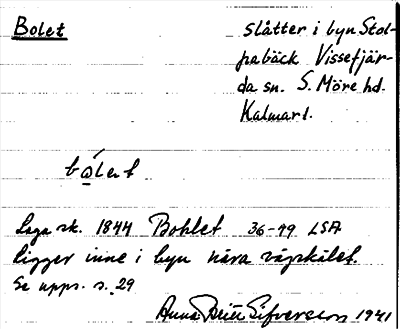 Bolet
slåtter i byn Stol-
pabäck Vissefjär-
da sn. S. Möre hd.
Kalmar l.
Laga sk. 1844 Bohlet 36-49 LSA
ligger inne i byn nära vägskälet.
Se upps. s. 29
Anna Sifversson 1941